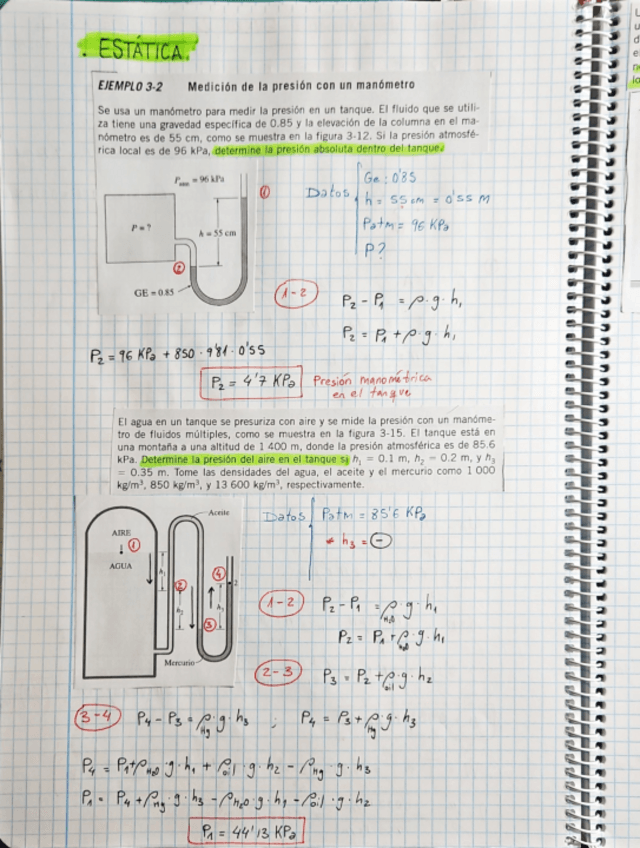 · ESTÁTICA.
EJEMPLO 3-2 Medición de la presión con un manómetro
Se usa un manómetro para medir la presión en un tanque. El fluido que se utili-
za tiene una gravedad específica de 0.85 y la elevación de la columna en el ma-
nómetro es de 55 cm, como se muestra en la figura 3-12. Si la presión atmosfé-
rica local es de 96 kPa, determine la presión absoluta dentro del tanque.
Patm = 96 kPa
①
P = ?
h = 55 cm
②
GE = 0.85
Datos
Ge: 0'85
h = 55 cm = 0'55 M
Patm = 96 KPa
P?
1-2
P₂ - P₁ = ρ·g·h₁
P₂ = P₁ + ρ·g·h₁
P₂ = 96 KPa + 850 · 9'81 · 0'55
P₂ = 4'7 KPa Presión manométrica
en el tanque
El agua en un tanque se presuriza con aire y se mide la presión con un manóme-
tro de fluidos múltiples, como se muestra en la figura 3-15. El tanque está en
una montaña a una altitud de 1 400 m, donde la presión atmosférica es de 85.6
kPa. Determine la presión del aire en el tanque si h₁ = 0.1 m, h₂ = 0.2 m, y h₃
= 0.35 m. Tome las densidades del agua, el aceite y el mercurio como 1 000
kg/m³, 850 kg/m³, y 13 600 kg/m³, respectivamente.
Aceite
AIRE
①
AGUA
h₁
②
④
2
h₂
h₃
③
Mercurio
Datos
Patm = 85'6 KPa
* h₃ = ⊖
1-2
P₂ - P₁ = ρH₂O·g·h₁
P₂ = P₁ + ρH₂O·g·h₁
2-3
P₃ = P₂ + ρoil·g·h₂
3-4
P₄ - P₃ = ρHg·g·h₃ ; P₄ = P₃ + ρHg·g·h₃
P₄ = P₁ + ρH₂O·g·h₁ + ρoil·g·h₂ - ρHg·g·h₃
P₁ = P₄ + ρHg·g·h₃ - ρH₂O·g·h₁ - ρoil·g·h₂
P₁ = 44'13 KPa